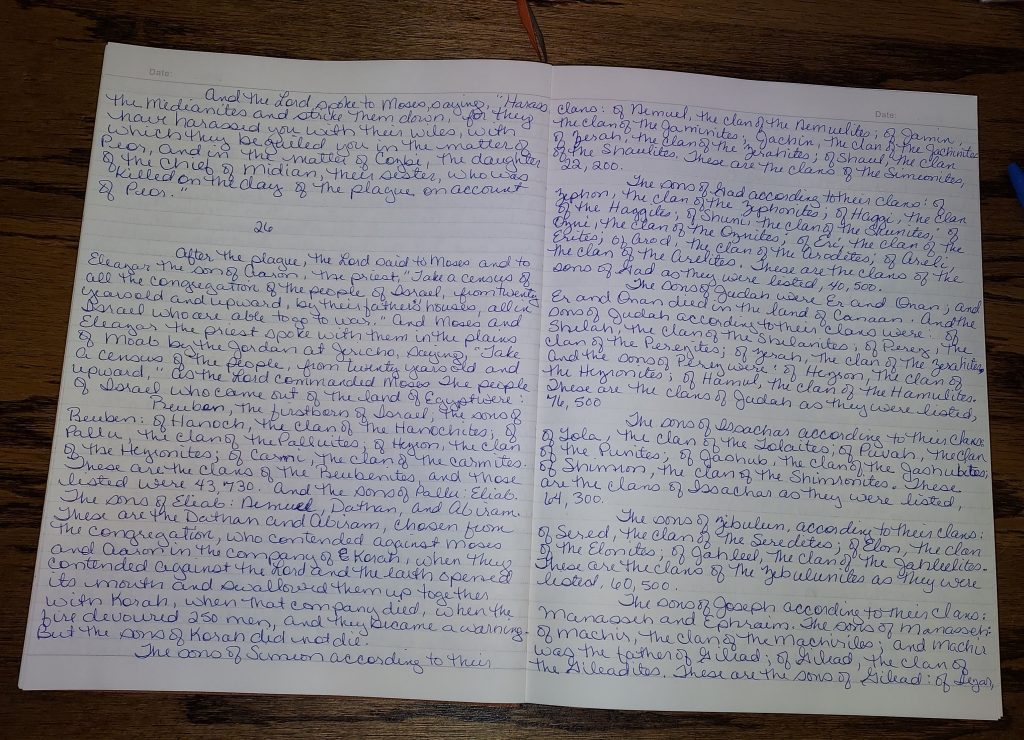 Date:
And the Lord spoke to Moses, saying, "Harass
the Medianites and strike them down, for they
have harassed you with their wiles, with
which they beguiled you in the matter of
Peor, and in the matter of Cozbi, the daughter
of the chief of Midian, their sister, who was
killed on the day of the plague on account
of Peor."
26
After the plague, the Lord said to Moses and to
Eleazar the son of Aaron, the priest, "Take a census of
all the congregation of the people of Israel, from twenty
years old and upward, by their fathers' houses, all in
Israel who are able to go to war." And Moses and
Eleazar the priest spoke with them in the plains
of Moab by the Jordan at Jericho, saying, "Take
a census of the people, from twenty years old and
upward," as the Lord commanded Moses. The people
of Israel who came out of the land of Egypt were:
Reuben, the firstborn of Israel; the sons of
Reuben: of Hanoch, the clan of the Hanochites; of
Pallu, the clan of the Palluites; of Hezron, the clan
of the Hezronites; of Carmi, the clan of the carmites.
These are the clans of the Reubenites, and those
listed were 43,730. And the sons of Pallu: Eliab.
The sons of Eliab: Nemuel, Dathan, and Abiram.
These are the Dathan and Abiram, chosen from
the congregation, who contended against Moses
and Aaron in the company of Korah, when they
contended against the Lord and the earth opened
its mouth and swallowed them up together
with Korah, when that company died, when the
fire devoured 250 men, and they became a warning.
But the sons of Korah did not die.
The sons of Simeon according to their
Date:
clans: of Nemuel, the clan of the Nemuelites; of Jamin,
the clan of the Jaminites; Jachin, the clan of the Jachinites;
of Zerah, the clan of the Zerahites; of Shaul, the clan
of the Shaulites. These are the clans of the Simeonites,
22,200.
The sons of Gad according to their clans: of
Zephon, the clan of the Zephonites; of Haggi, the clan
of the Haggites; of Shuni, the clan of the Shunites; of
Ozni, the clan of the Oznites; of Eri, the clan of the
Erites; of Arod, the clan of the Arodites; of Areli,
the clan of the Arelites. These are the clans of the
sons of Gad as they were listed, 40,500.
The sons of Judah were Er and Onan; and
Er and Onan died in the land of Canaan. And the
sons of Judah according to their clans were: of
Shelah, the clan of the Shelanites; of Perez, the
clan of the Perezites; of Zerah, the clan of the Zerahites.
And the sons of Perez were: of Hezron, the clan of
the Hezronites; of Hamul, the clan of the Hamulites.
These are the clans of Judah as they were listed,
76,500
The sons of Issachar according to their clans:
of Tola, the clan of the Tolaites; of Puvah, the clan
of the Punites; of Jashub, the clan of the Jashubites;
of Shimron, the clan of the Shimronites. These
are the clans of Issachar as they were listed,
64,300.
The sons of Zebulun, according to their clans:
of Sered, the clan of the Seredites; of Elon, the clan
of the Elonites; of Jahleel, the clan of the Jahleelites.
These are the clans of the Zebulunites as they were
listed, 60,500.
The sons of Joseph according to their clans:
Manasseh and Ephraim. The sons of Manasseh:
of Machir, the clan of the Machirites; and Machir
was the father of Gilead; of Gilead, the clan of
the Gileadites. These are the sons of Gilead: of Iezer,